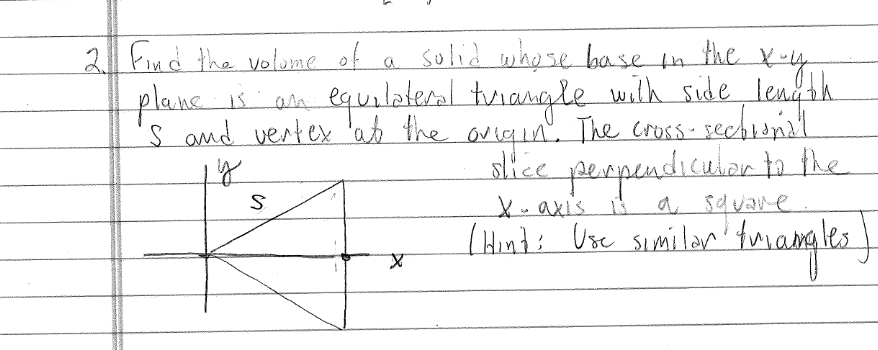 2. Find the volume of a solid whose base in the x-y
plane is an equilateral triangle with side length
s and vertex at the origin. The cross-sectional
slice perpendicular to the
x-axis is a square.
(Hint: Use similar triangles)
y
s
x